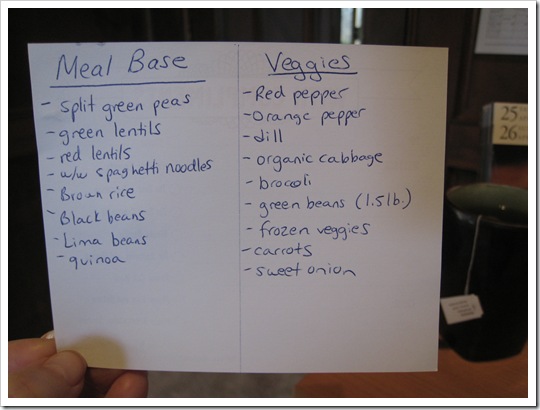 Meal Base
- Split green peas
- green lentils
- red lentils
- w/w spaghetti noodles
- Brown rice
- Black beans
- Lima beans
- quinoa
Veggies
- Red pepper
- Orange pepper
- dill
- organic cabbage
- brocoli
- green beans (1.5 lb.)
- frozen veggies
- carrots
- sweet onion
25
26